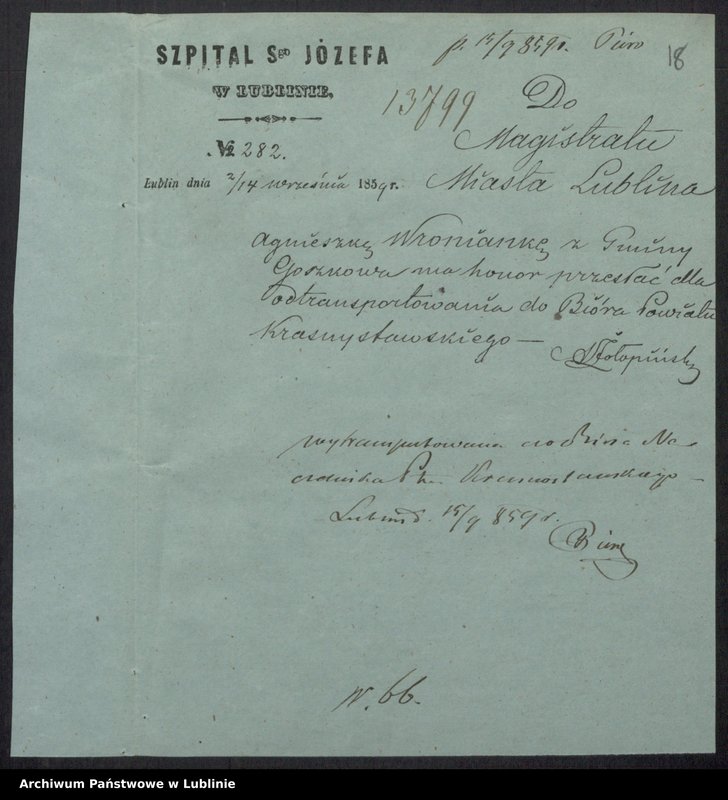 SZPITAL Sgo JÓZEFA
W LUBLINIE,
№ 282.
Lublin dnia 2/14 września 1859 r.
p. 15/9 859 r. Pióro
18
13799
Do
Magistratu
Miasta Lublina
Agnieszkę Wroniankę z Gminy
Gorzkowa ma honor przesłać dla
odtransportowania do Bióra Powiatu
Krasnystawskiego —
wytransportowana do Bióra Na-
czelnika Ptu Krasnostawskiego —
Lublin d. 15/9 859 r.
N. 66.
Archiwum Państwowe w Lublinie